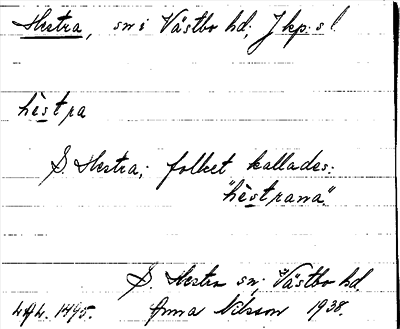 Hestra, sn i Västbo hd, Jkp. sl.
hèstra
S. Hestra; folket kallades:
"hèstrana".
S. Hestra sn; Västbo hd.
Anna Nilsson 1938.